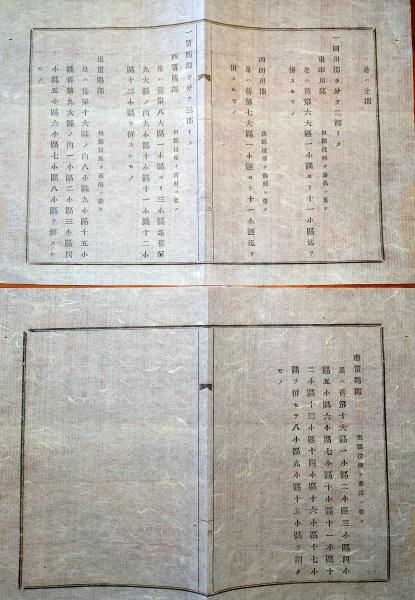 是ハ全郡
一田川郡ヲ分テ二郡トス
東田川郡 但郡役所ヲ藤島ニ置ク
是ハ舊第六大區一小區ヨリ十一小區迄ヲ
併スルモノ
西田川郡 但郡役所ヲ鶴岡ニ置ク
是ハ舊第七大區一小區ヨリ十一小區迄ヲ
併スルモノ
一置賜郡ヲ分テ三郡トス
西置賜郡 但郡役所ヲ宮村ニ置ク
是ハ舊第八大區一小區ヨリ三小區迄舊第
九大區ノ内九小區十小區十一小區十二小
區十三小區ヲ併スルモノ
東置賜郡 但郡役所ヲ
是ハ舊第十大區ノ内八小區九小區十五小
區舊第九大區ノ内一小區二小區三小區四
小區五小區六小區七小區八小區ヲ併スル
モノ
南置賜郡 但郡役所ヲ
是ハ舊第十大區一小區二小區三小區四小
區五小區六小區七小區十小區十一小區十
二小區十三小區十四小區十六小區十七小
區ヲ併セテ八小區九小區十五小區ヲ割ク
モノ